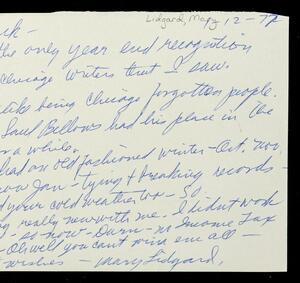 Lidgard, Mary 12-77
the only year end recognition
Chicago writers that I saw.
like being Chicago forgotten people.
Saul Bellows had his place in the
a while.
had an old fashioned winter - Oct. Nov.
now Jan - tying & breaking records -
your cold weather too - So
really new with me. I didnt work
- so now - Darn - no Income Tax
- Oh well you can't win em all -
wishes - Mary Lidgard.